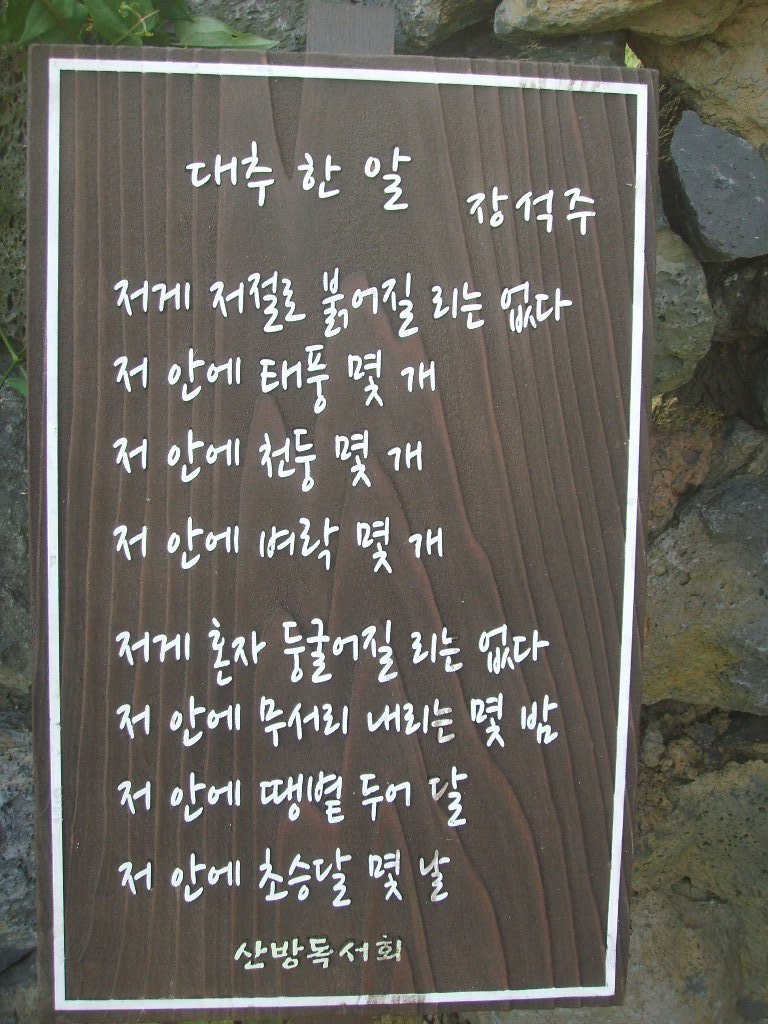 대추 한 알
장석주
저게 저절로 붉어질 리는 없다
저 안에 태풍 몇 개
저 안에 천둥 몇 개
저 안에 벼락 몇 개
저게 혼자 둥글어질 리는 없다
저 안에 무서리 내리는 몇 밤
저 안에 땡볕 두어 달
저 안에 초승달 몇 날
산방독서회